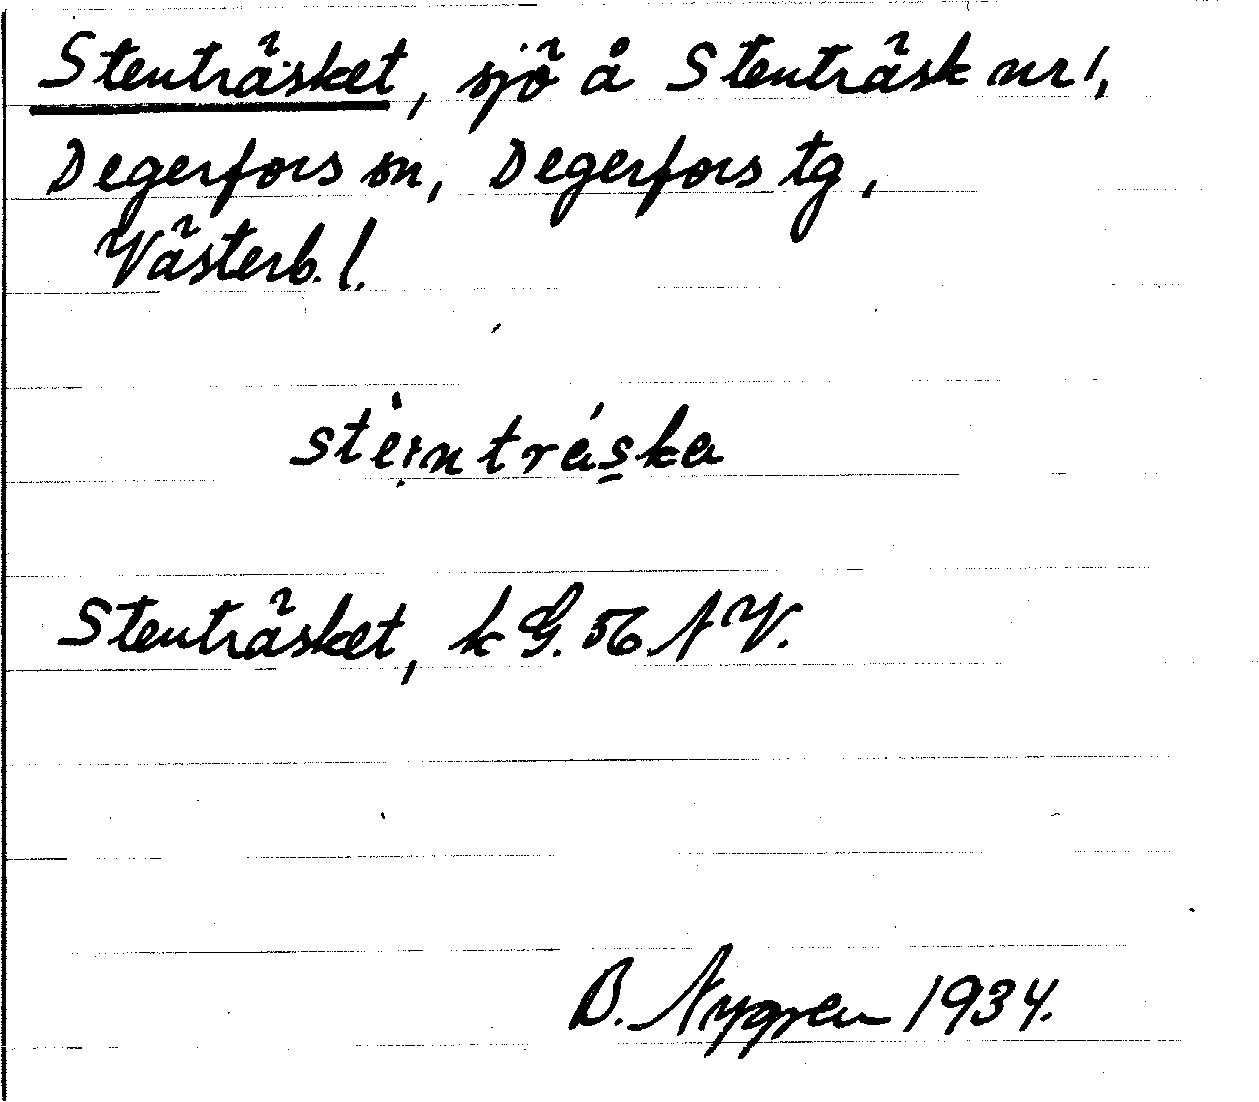 Stenträsket, sjö å Stenträsk nr 1,
Degerfors sn, Degerfors tg,
Västerb. l.
steintráska
Stenträsket, k G. 56 NV.
B. Nygren 1934.